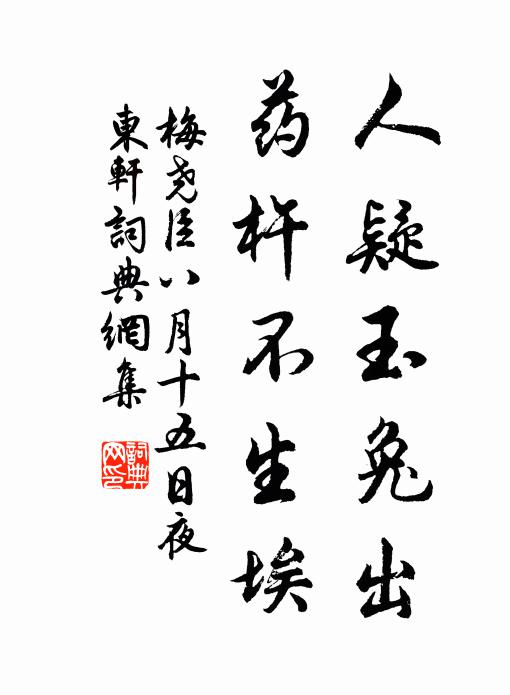 人疑玉兔出
药杵不生埃
梅尧臣八月十五日夜
東軒詞典網集
詞典网印